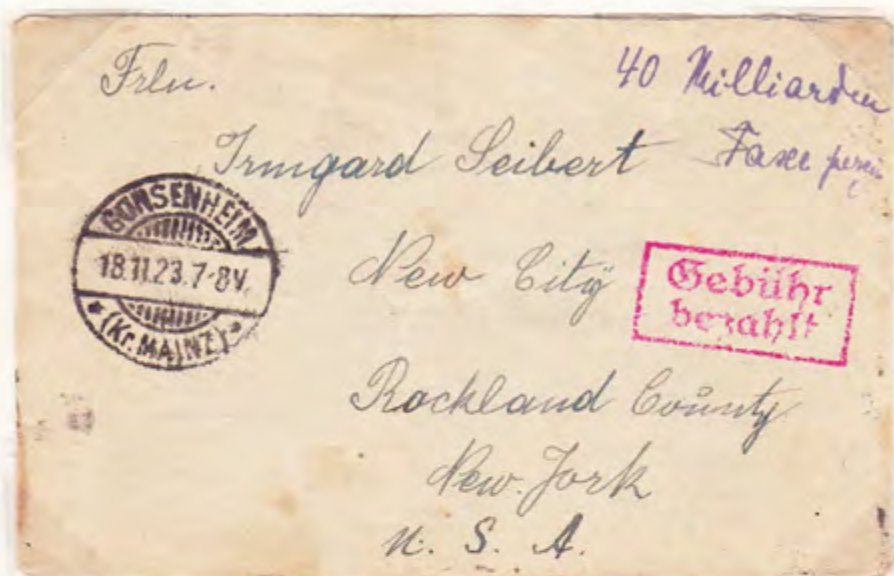 Frln.
40 Milliarden
Irmgard Seibert
Taxe
GONSENHEIM
18.11.23.7-8V.
* (Kr. MAINZ) *
New City
Gebühr
bezahlt
Rockland County
New-York
U. S. A.